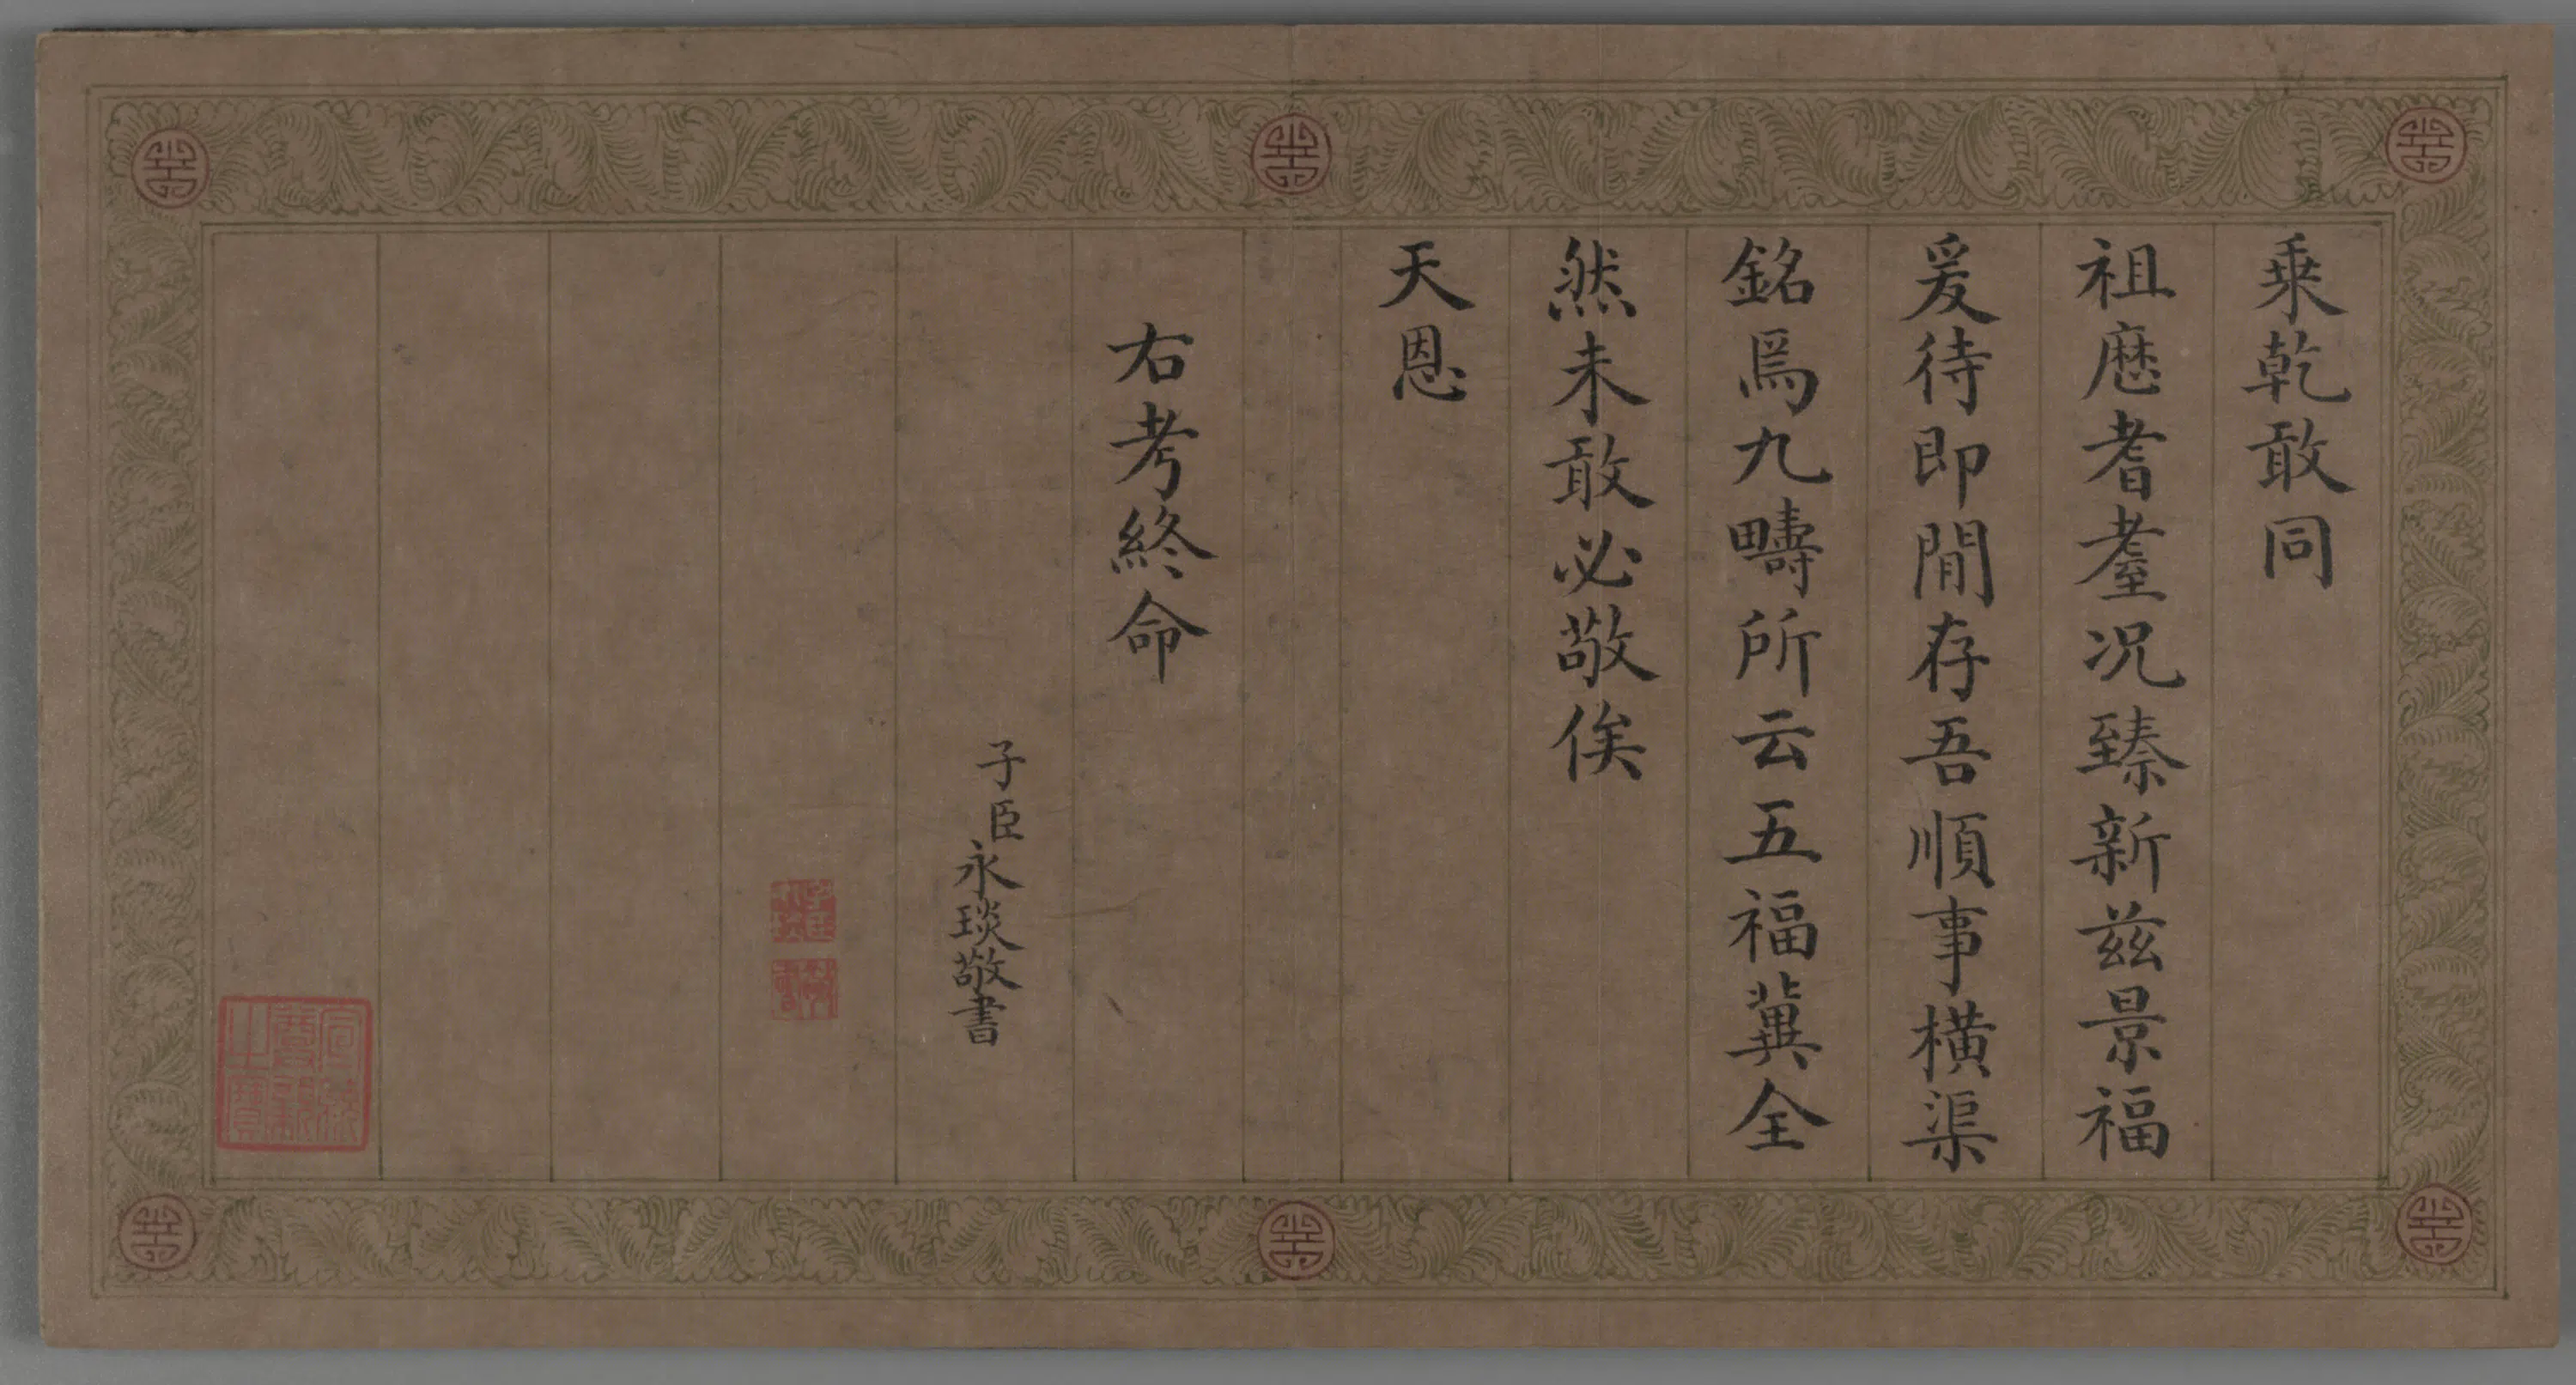 乘乾敢同
祖歷耆耋况臻新兹景福
爰待即閒存吾順事横渠
銘焉九疇所云五福冀全
然未敢必敬俟
天恩
右考終命
子臣永琰敬書